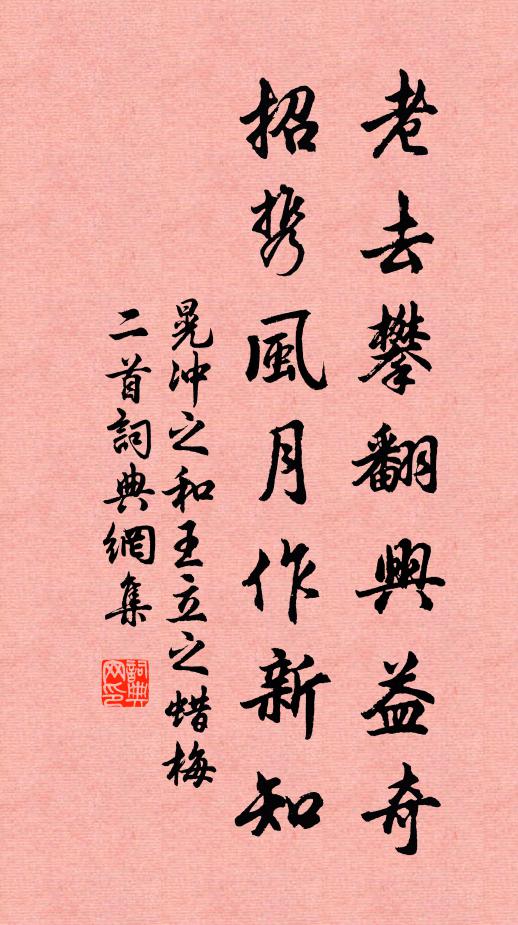 老去攀翻興益奇
招携風月作新知
晁沖之和王立之蜡梅
二首詞典網集
詞典
网印